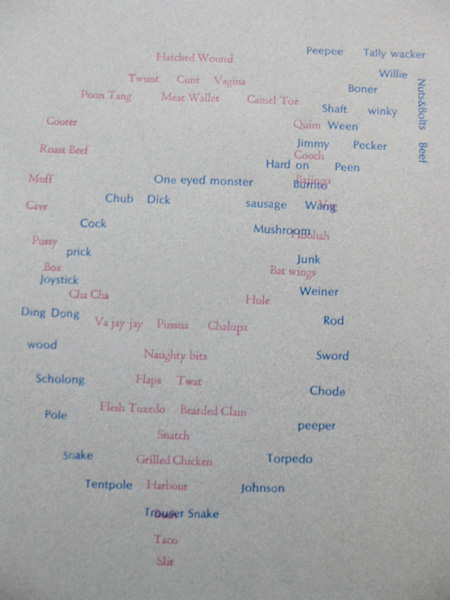 Peepee Tally wacker
Hatched Wound
Willie
Twunt Cunt Vagina
Boner
Poon Tang Meat Wallet Camel Toe
Nuts&Bolts Beef
Shaft winky
Cooter
Quim Ween
Jimmy Pecker
Roast Beef
Cooch
Hard on Peen
Muff
One eyed monster
Burrito
Chub Dick
sausage Wang
Cave
Cock
Mushroom
Pussy
prick
Junk
Box
Bat wings
Joystick
Weiner
Cha Cha
Hole
Ding Dong
Va jay jay Pussita Chalupa
Rod
wood
Naughty bits
Sword
Scholong
Flaps Twat
Chode
Pole
Flesh Tuxedo Bearded Clam
peeper
Snatch
Snake
Grilled Chicken
Torpedo
Tentpole
Harbour
Johnson
Trouser Snake
Taco
Slit